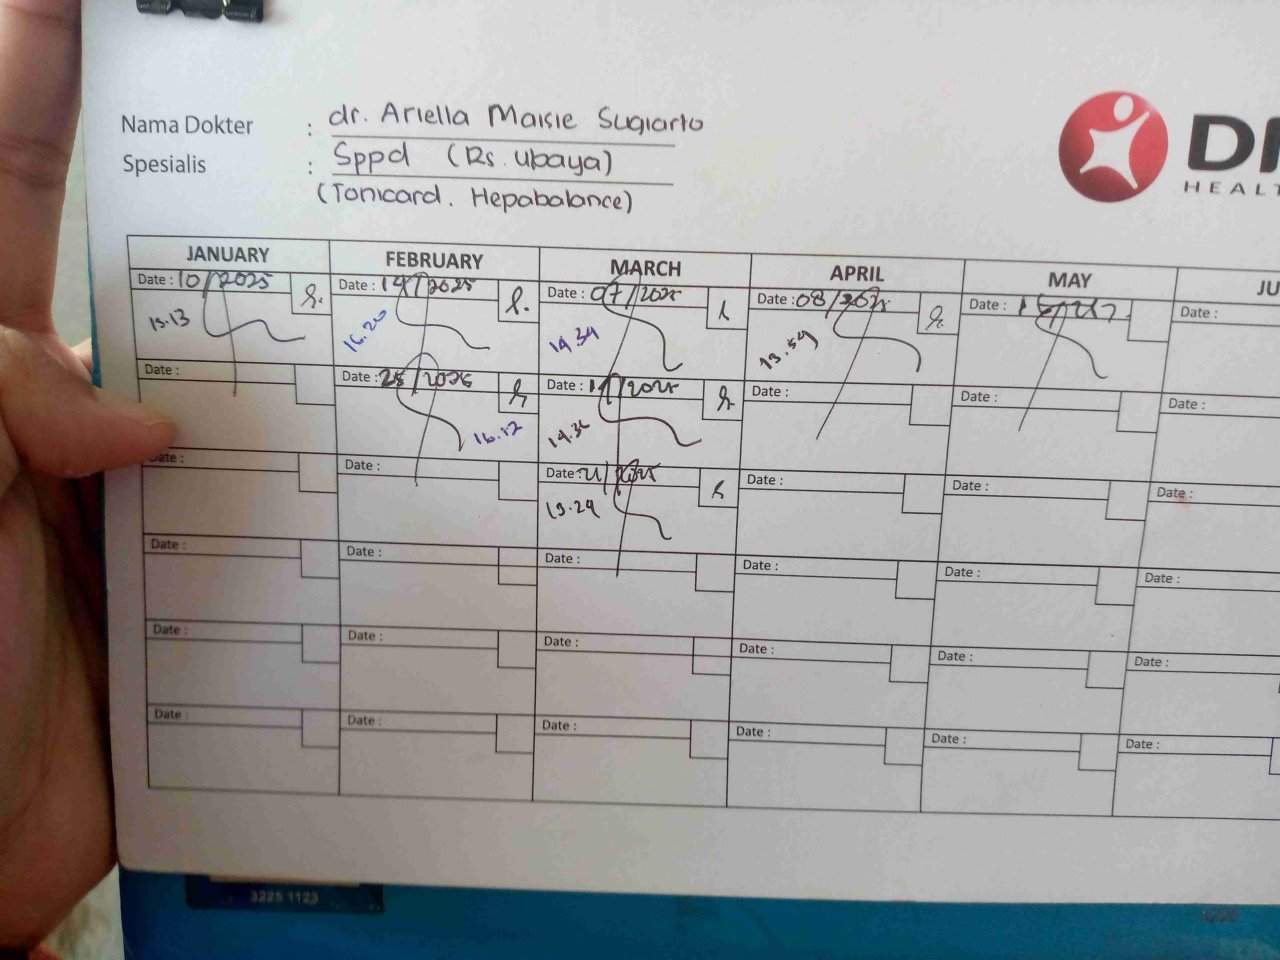 Nama Dokter : dr. Ariella Maisie Sugiarto
Spesialis : Sppd (Rs. Ubaya)
(Tonicard. Hepabalance)
HEALT
JANUARY FEBRUARY MARCH APRIL MAY JU
Date : 10/2025 Date : 14/2025 Date : 07/2025 Date : 08/2025 Date : Date :
15.13 16.20 14.34 13.54
Date : Date : 25/2025 Date : /2025 Date : Date : Date :
16.12 14.36
Date : Date : Date : 21/2025 Date : Date : Date :
15.29
Date : Date : Date : Date : Date : Date :
Date : Date : Date : Date : Date : Date :
Date : Date : Date : Date : Date : Date :
3225 1123